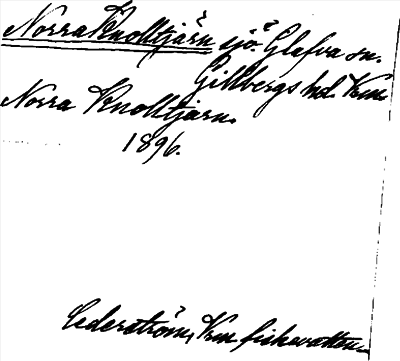 Norra Knolltjärn sjö. Glafva sn.
Gillbergs hd. Vrm
Norra Knolltjärn.
1896.
Cederström, Vrm fiskevatten.